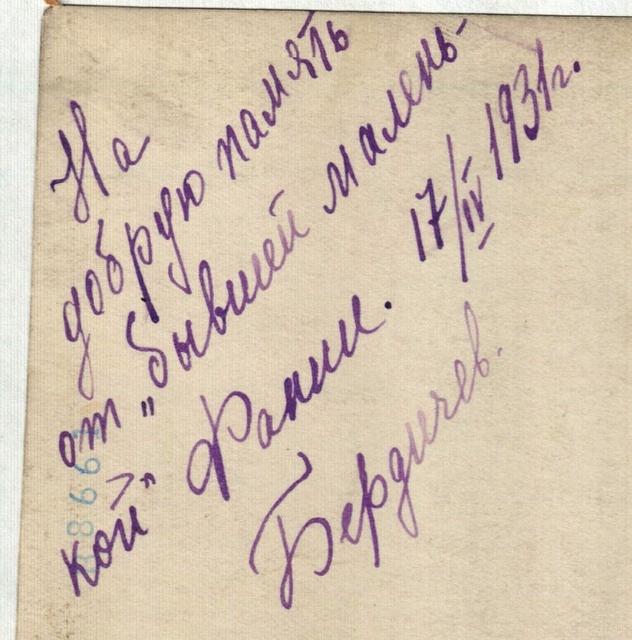 На
добрую память
от „бывшей малень-
кой" Фании.
17/IV 1931 г.
Бердичев.